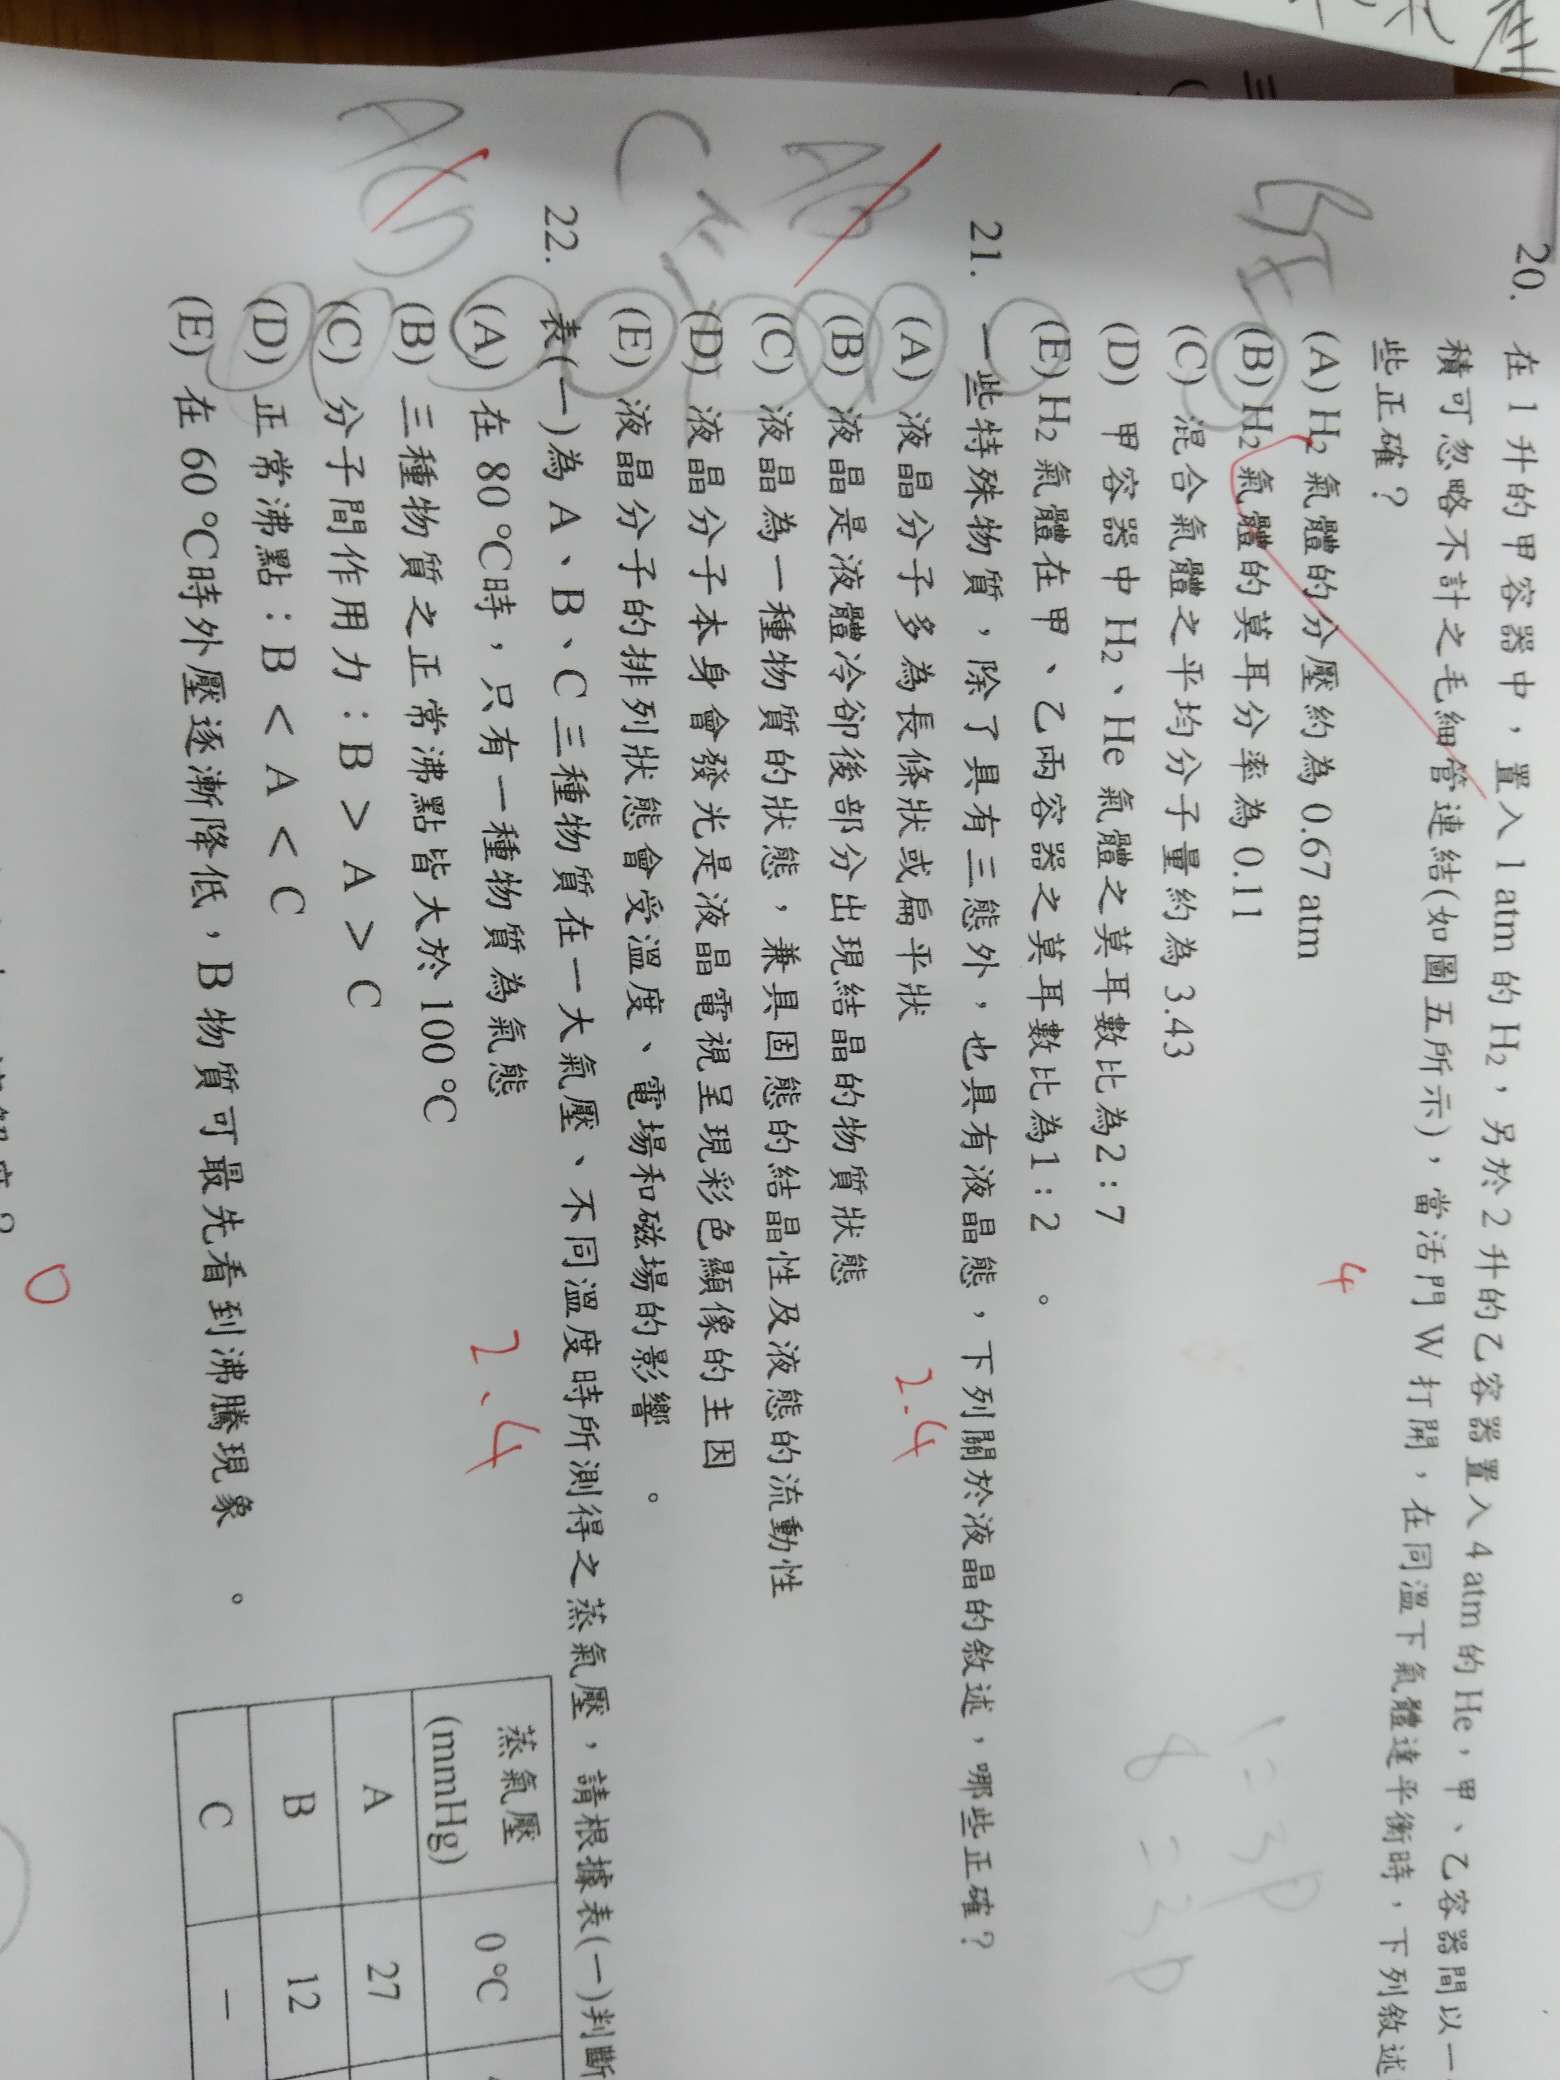 20. 在 1 升的甲容器中，置入 1 atm 的 H₂，另於 2 升的乙容器置入 4 atm 的 He，甲、乙容器間以一
積可忽略不計之毛細管連結(如圖五所示)，當活門 W 打開，在同溫下氣體達平衡時，下列敘述
些正確？
(A) H₂ 氣體的分壓約為 0.67 atm
(B) H₂ 氣體的莫耳分率為 0.11
(C) 混合氣體之平均分子量約為 3.43
(D) 甲容器中 H₂、He 氣體之莫耳數比為 2 : 7
(E) H₂ 氣體在甲、乙兩容器之莫耳數比為 1 : 2 。
BE
4
1 = 3P
8 = 3P
21. 一些特殊物質，除了具有三態外，也具有液晶態，下列關於液晶的敘述，哪些正確？
(A) 液晶分子多為長條狀或扁平狀
(B) 液晶是液體冷卻後部分出現結晶的物質狀態
(C) 液晶為一種物質的狀態，兼具固態的結晶性及液態的流動性
(D) 液晶分子本身會發光是液晶電視呈現彩色顯像的主因
(E) 液晶分子的排列狀態會受溫度、電場和磁場的影響 。
AB
CE
2.4
22. 表(一)為 A、B、C 三種物質在一大氣壓、不同溫度時所測得之蒸氣壓，請根據表(一)判斷
(A) 在 80 ℃時，只有一種物質為氣態
(B) 三種物質之正常沸點皆大於 100 ℃
(C) 分子間作用力：B > A > C
(D) 正常沸點：B < A < C
(E) 在 60 ℃時外壓逐漸降低，B 物質可最先看到沸騰現象 。
ACD
2.4
蒸氣壓
(mmHg) 0 ℃
A 27
B 12
C －
0